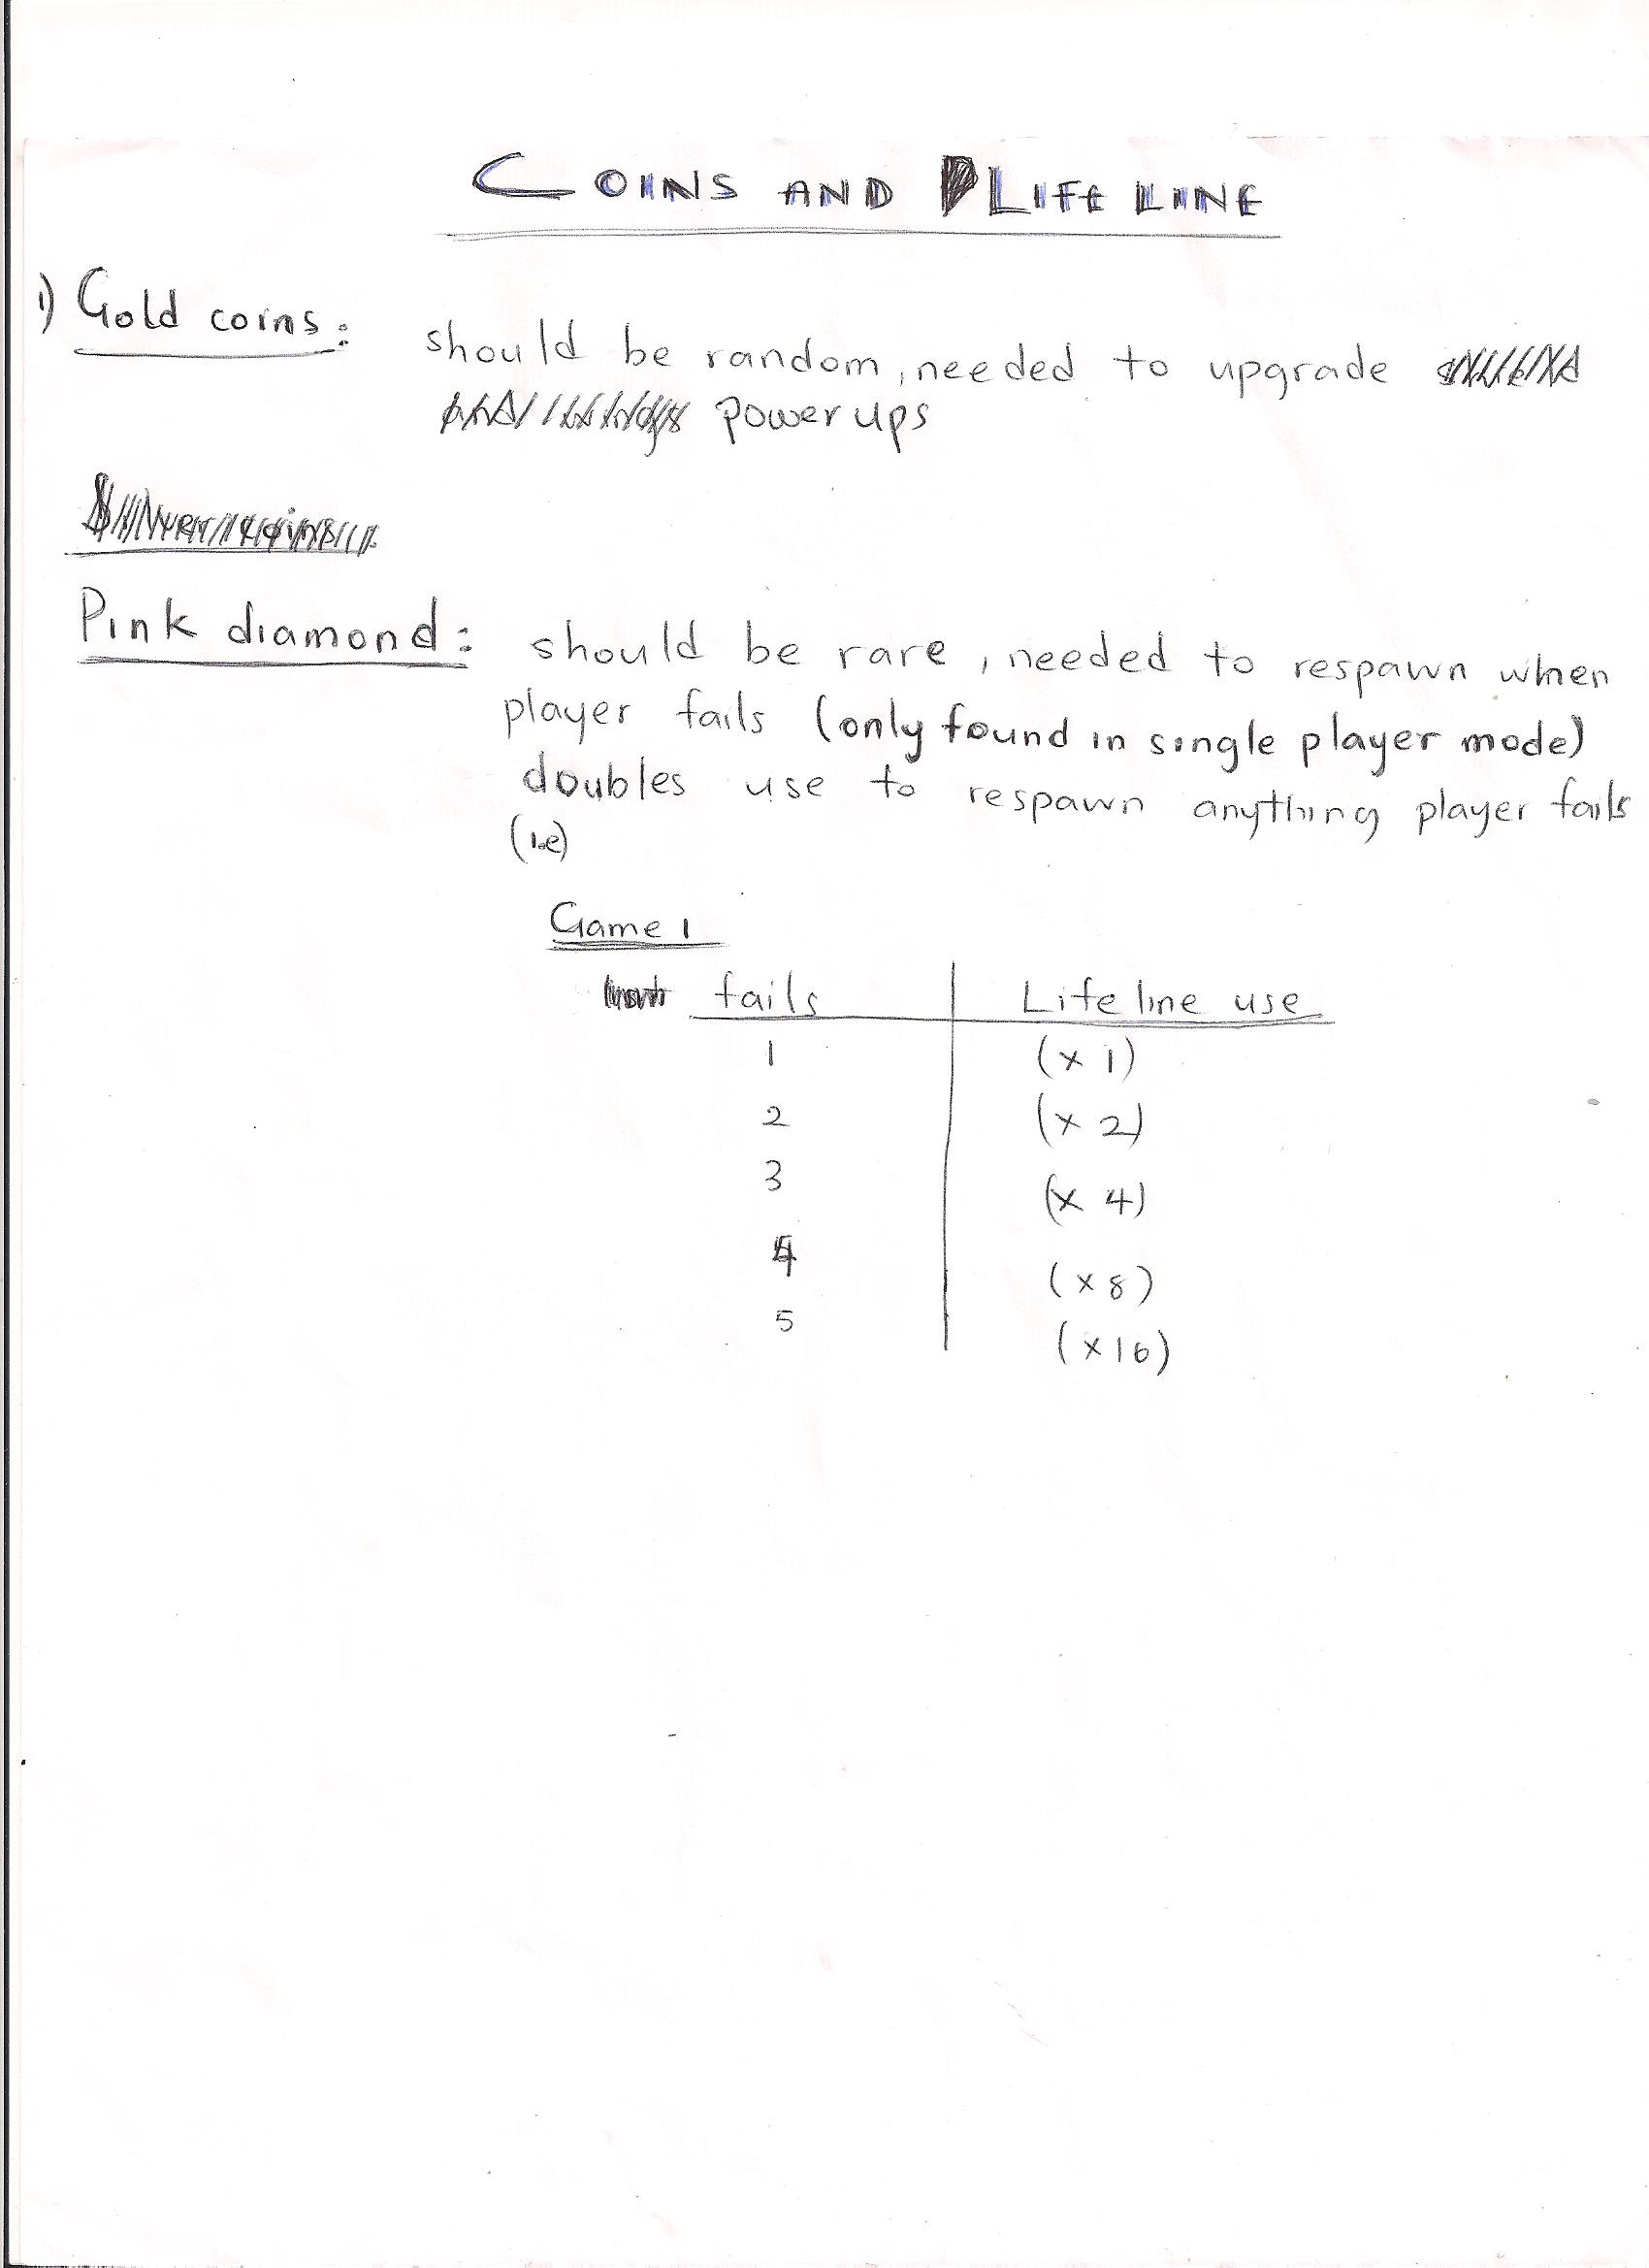 COINS AND LIFE LINE
1) Gold coins: should be random, needed to upgrade
power ups
Pink diamond: should be rare, needed to respawn when
player fails (only found in single player mode)
doubles use to respawn anything player fails
(i.e)
Game 1
fails Life line use
1 (x 1)
2 (x 2)
3 (x 4)
4 (x 8)
5 (x 16)